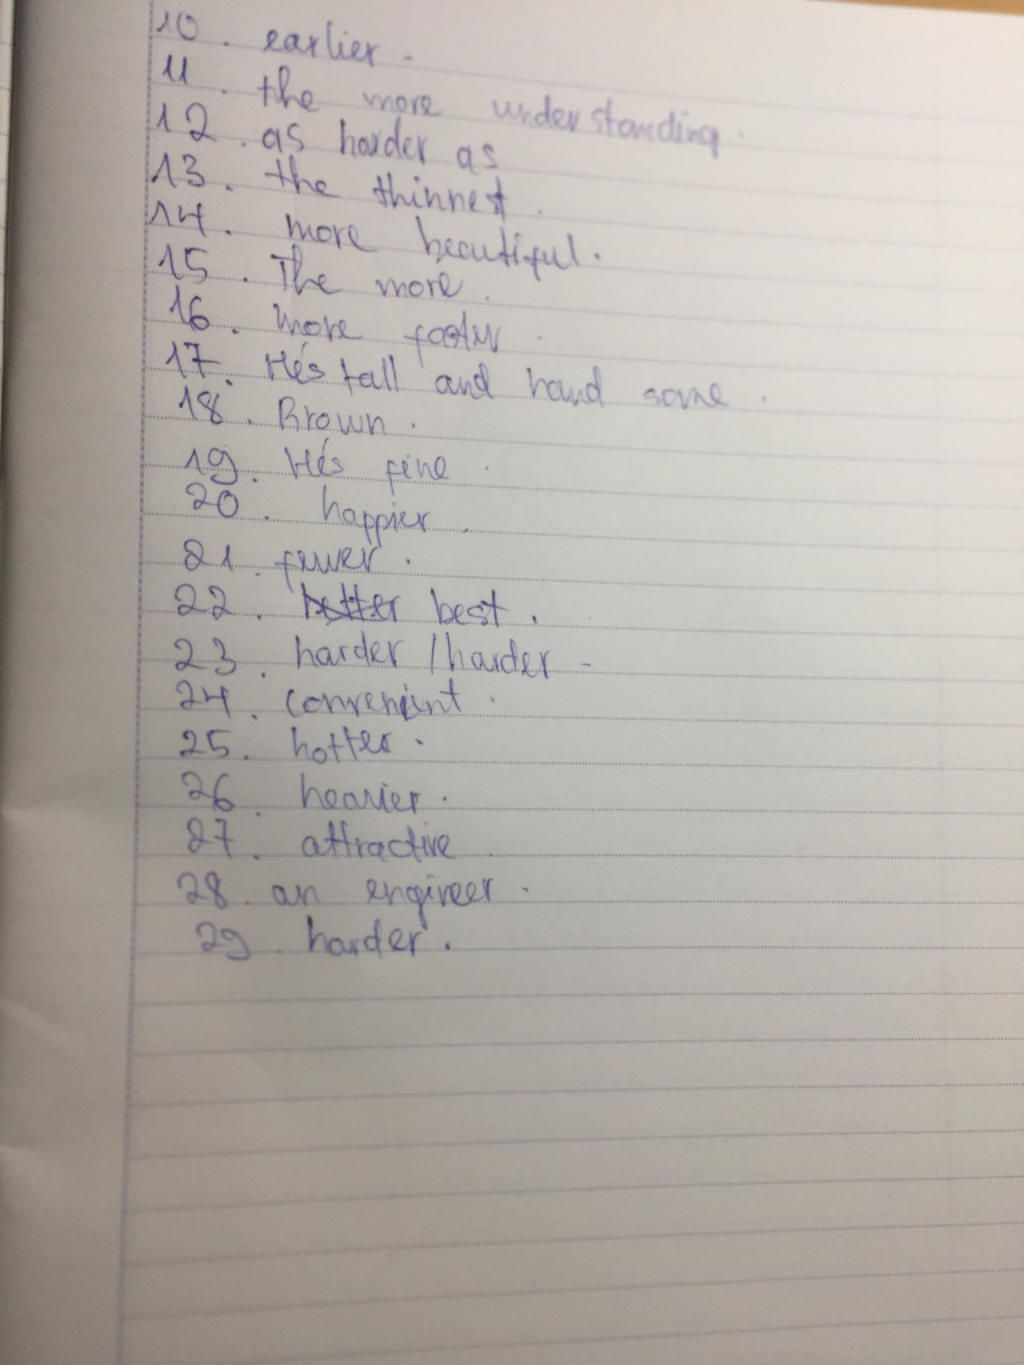 10. earlier.
11. the more understanding.
12. as harder as
13. the thinnest.
14. more beautiful.
15. The more.
16. more faster.
17. He's tall and hand some.
18. Brown.
19. He's fine.
20. happier.
21. fewer.
22. better best.
23. harder / harder -
24. convenient.
25. hotter.
26. heavier.
27. attractive.
28. an engineer.
29. harder.